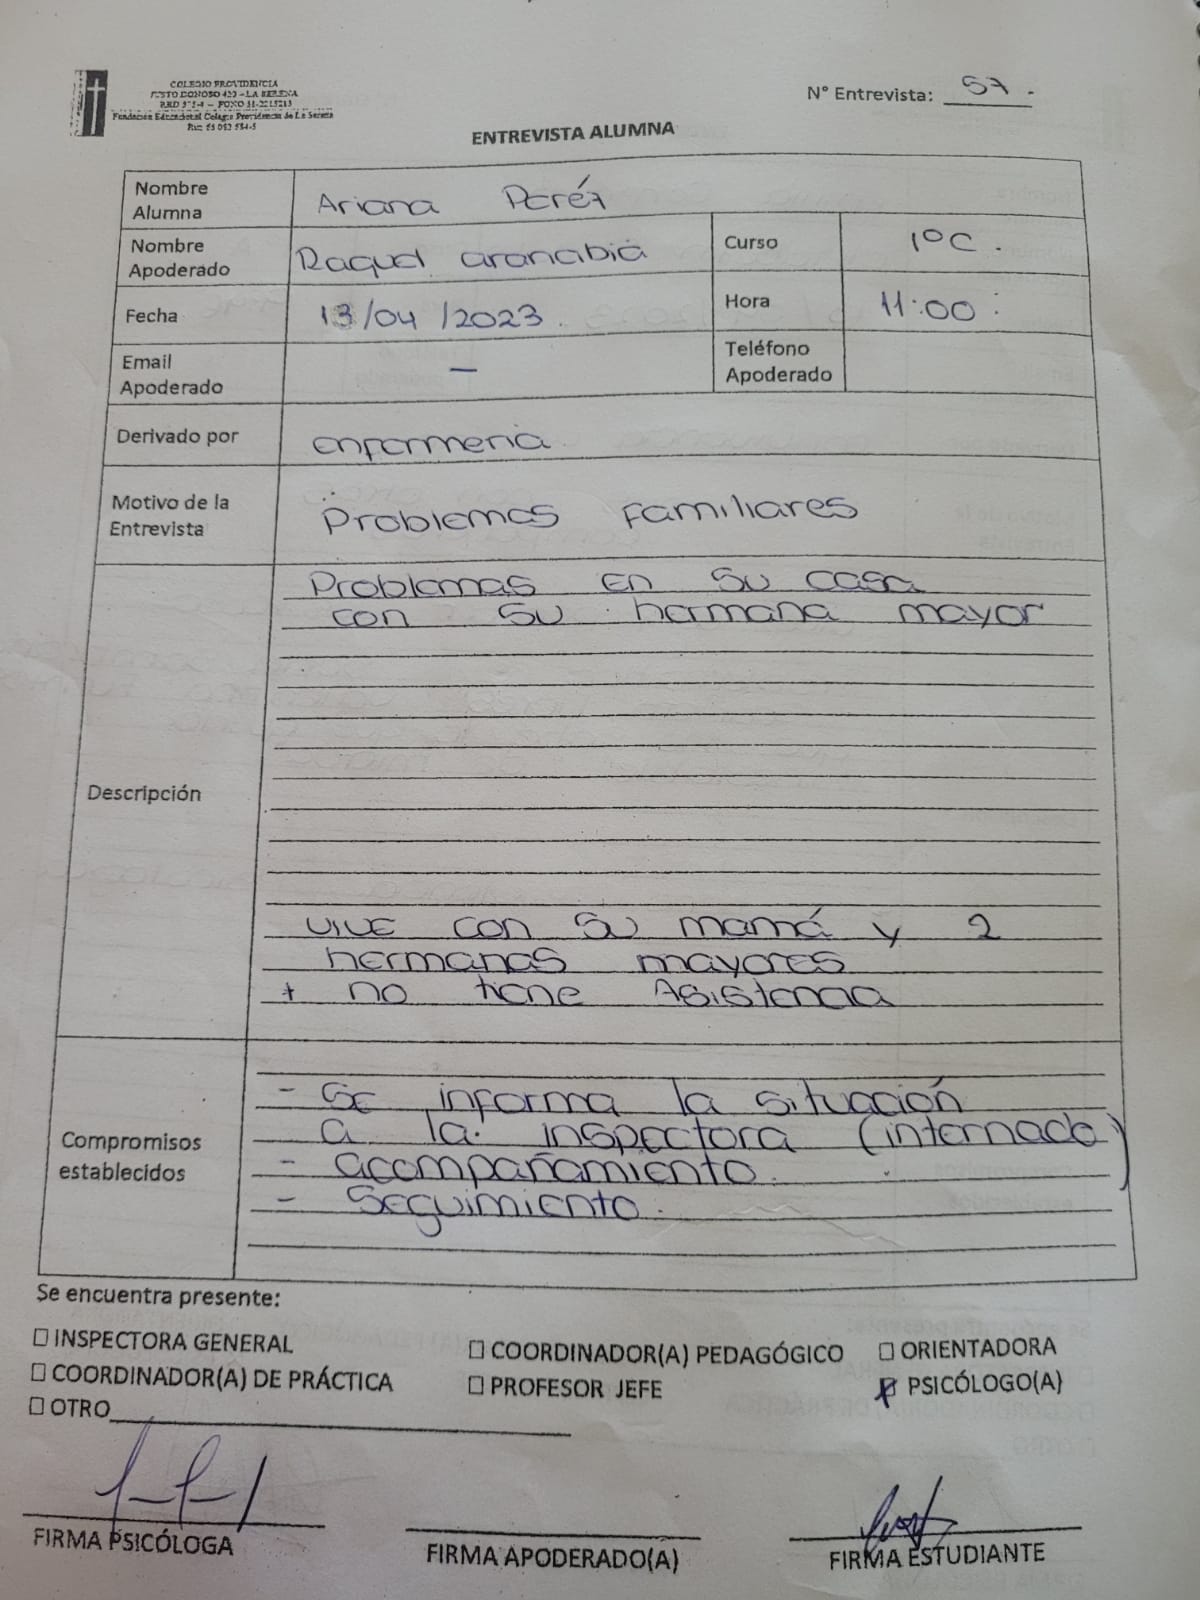 COLEGIO PROVIDENCIA
JUSTO DONOSO 420 - LA SERENA
Fundación Educacional Colegio Providencia de La Serena
N° Entrevista: 57.
ENTREVISTA ALUMNA
Nombre Alumna Ariana Peréz
Nombre Apoderado Raquel arancibia
Curso 1°C.
Fecha 13/04/2023.
Hora 11:00
Email Apoderado –
Teléfono Apoderado
Derivado por enfermeria
Motivo de la Entrevista Problemas Familiares
Descripción
Problemas en su casa
con su hermana mayor
vive con su mamá y 2
hermanas mayores
+ no tiene Asistencia
Compromisos establecidos
- Se informa la situación
a la inspectora (internado)
- acompañamiento.
- Seguimiento.
Se encuentra presente:
INSPECTORA GENERAL
COORDINADOR(A) PEDAGÓGICO
ORIENTADORA
COORDINADOR(A) DE PRÁCTICA
PROFESOR JEFE
PSICÓLOGO(A)
OTRO
FIRMA PSICÓLOGA
FIRMA APODERADO(A)
FIRMA ESTUDIANTE